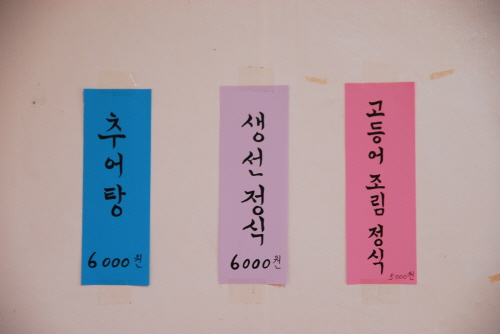 추어탕
6000원
생선정식
6000원
고등어 조림 정식
5000원